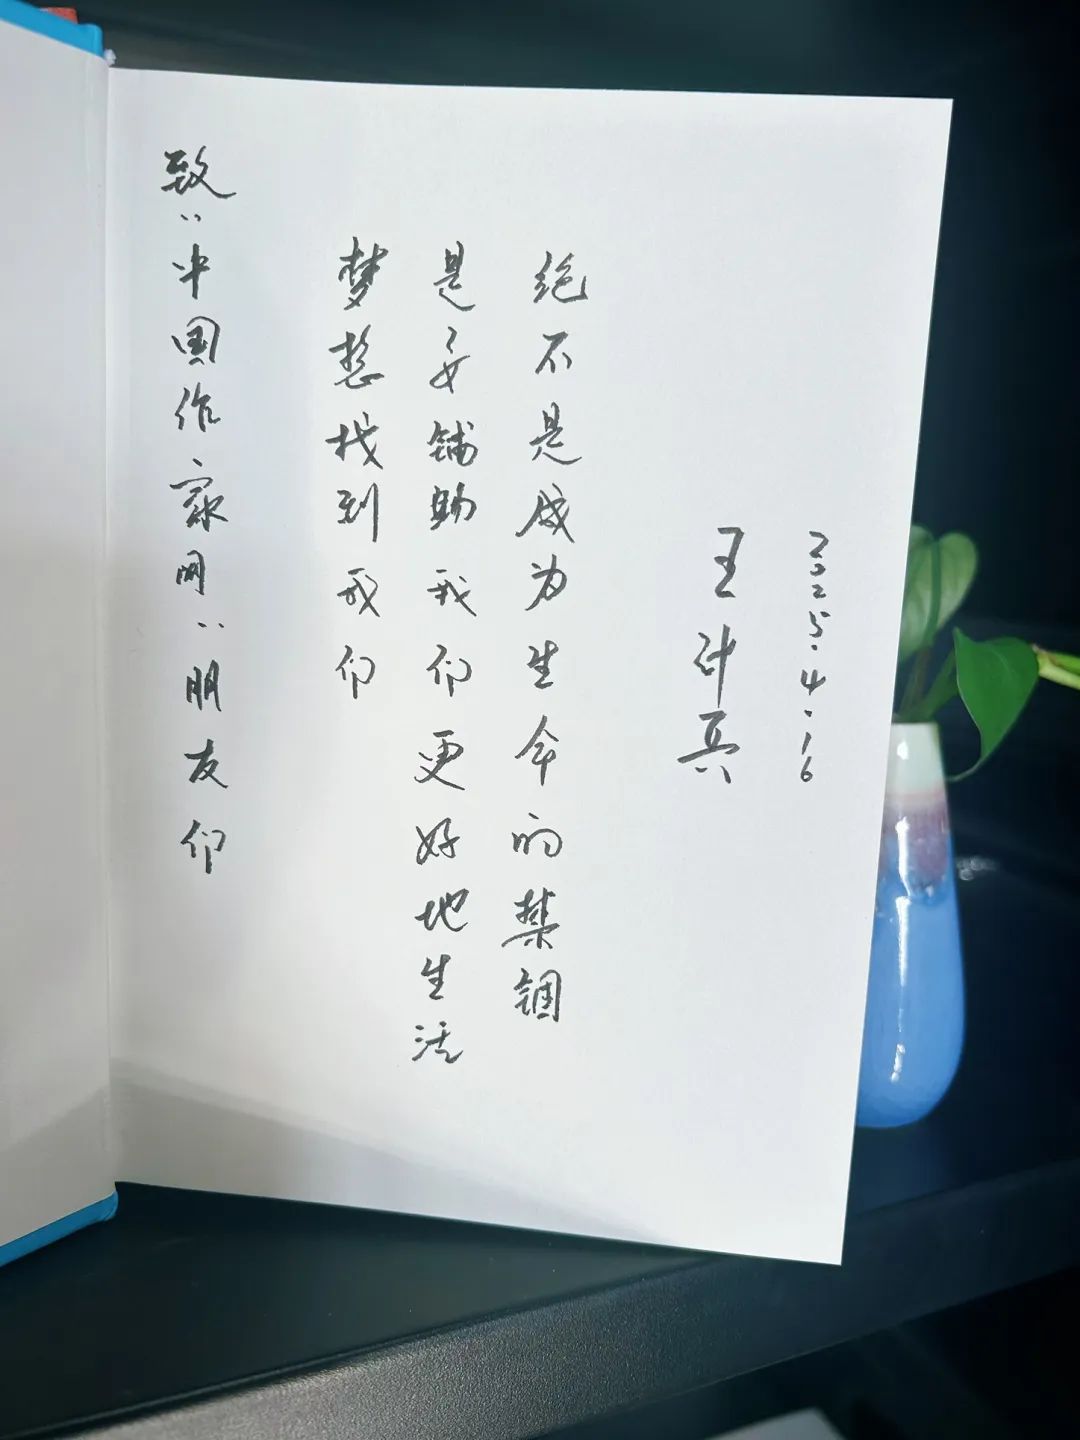 致“中国作家网”朋友们
梦想找到我们
是要辅助我们更好地生活
绝不是成为生命的禁锢
王计兵
2025.4.16